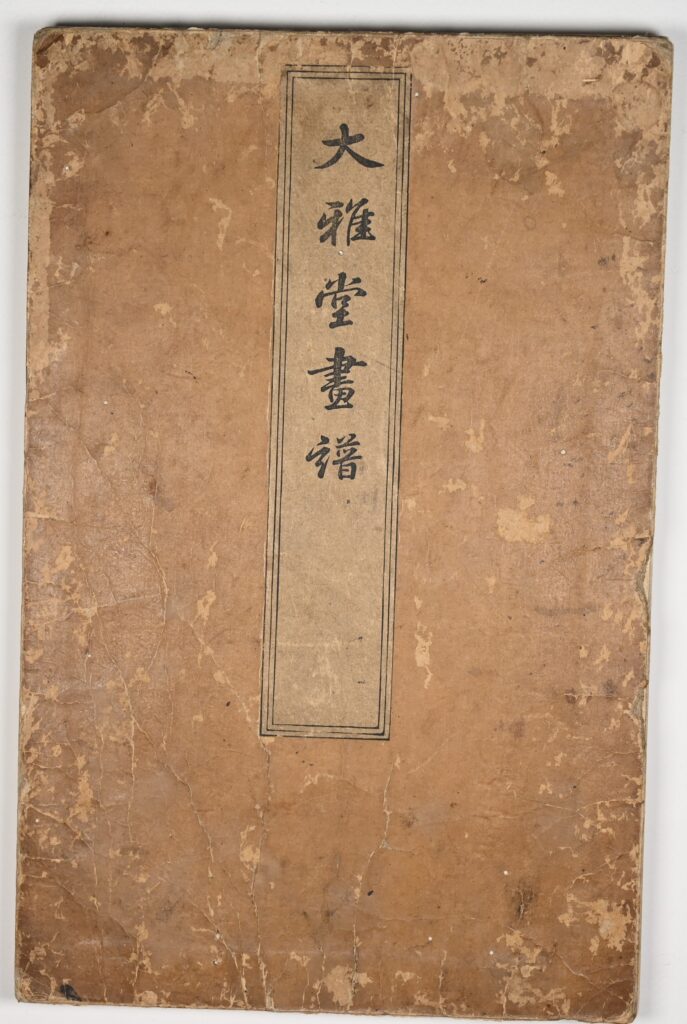 大雅堂畫譜